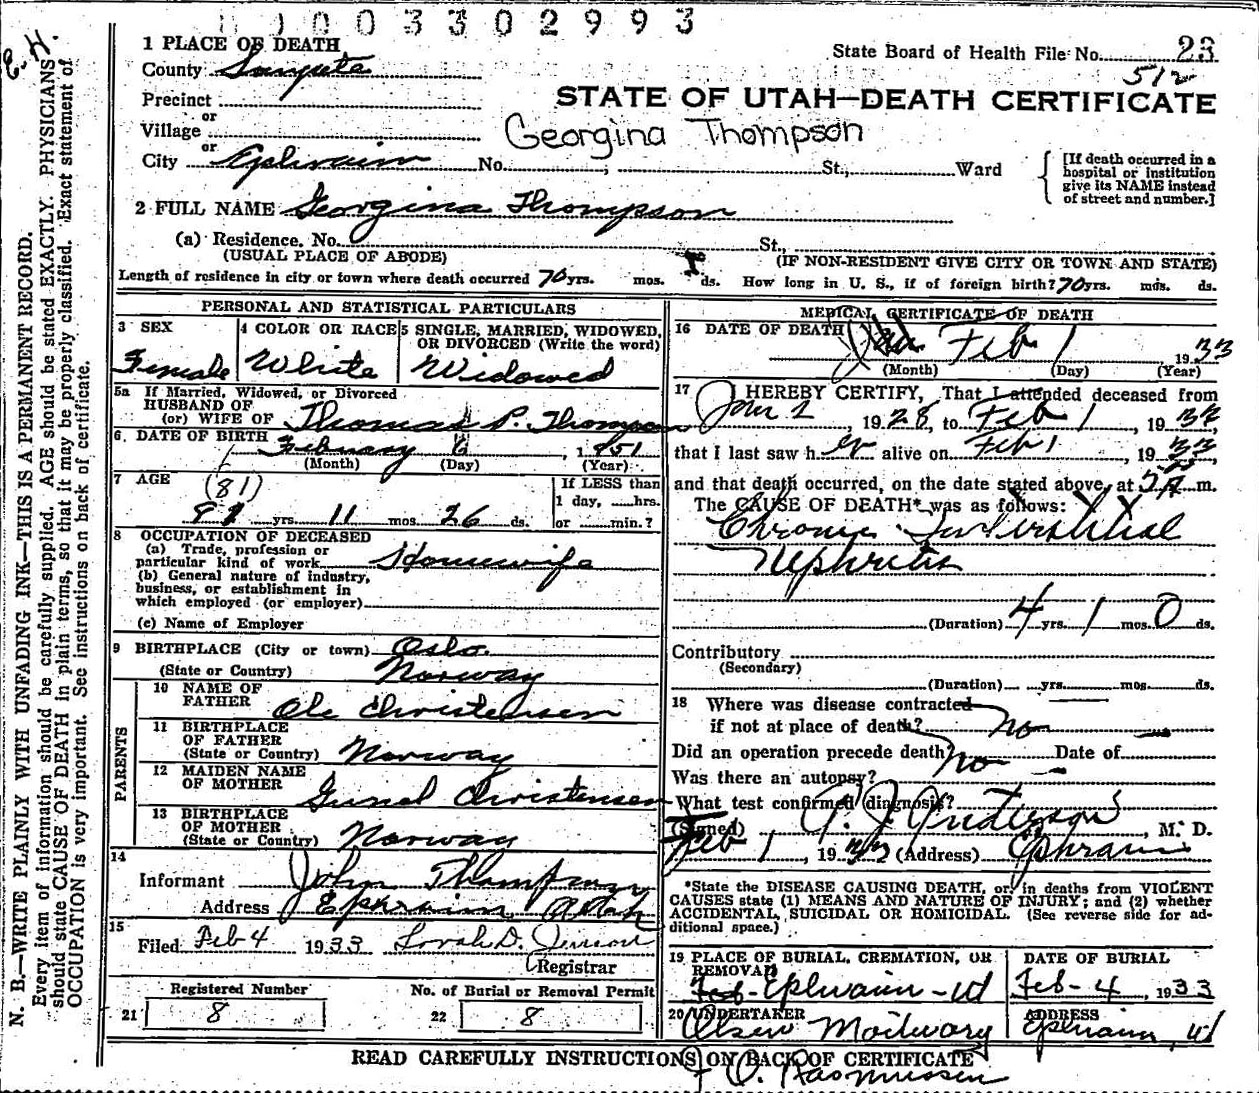 1 0 0 3 3 0 2 9 9 3
E.H.
1 PLACE OF DEATH
State Board of Health File No. 23
County Sanpete
512
Precinct
STATE OF UTAH—DEATH CERTIFICATE
or
Village
Georgina Thompson
or
City Ephraim No. ; St., Ward
[If death occurred in a
hospital or institution
give its NAME instead
of street and number.]
2 FULL NAME Georgina Thompson
(a) Residence. No. St.,
(USUAL PLACE OF ABODE) (IF NON-RESIDENT GIVE CITY OR TOWN AND STATE)
Length of residence in city or town where death occurred 70 yrs. mos. ds. How long in U. S., if of foreign birth? 70 yrs. mds. ds.
PERSONAL AND STATISTICAL PARTICULARS
3 SEX
Female
4 COLOR OR RACE
White
5 SINGLE, MARRIED, WIDOWED,
OR DIVORCED (Write the word)
Widowed
5a If Married, Widowed, or Divorced
HUSBAND OF
(or) WIFE OF Thomas P. Thompson
6 DATE OF BIRTH February 6, 1851
(Month) (Day) (Year)
7 AGE (81)
91 yrs. 11 mos. 26 ds.
If LESS than
1 day, hrs.
or min.?
8 OCCUPATION OF DECEASED
(a) Trade, profession or
particular kind of work Housewife
(b) General nature of industry,
business, or establishment in
which employed (or employer)
(c) Name of Employer
9 BIRTHPLACE (City or town) Oslo.
(State or Country) Norway
PARENTS
10 NAME OF
FATHER Ole Christensen
11 BIRTHPLACE
OF FATHER
(State or Country) Norway
12 MAIDEN NAME
OF MOTHER Christensen
13 BIRTHPLACE
OF MOTHER
(State or Country) Norway
14
Informant John Thompson
Address Ephraim Utah
15
Filed Feb 4 1933
Registrar
Registered Number
21 8
No. of Burial or Removal Permit
22 8
MEDICAL CERTIFICATE OF DEATH
16 DATE OF DEATH Jan Feb 1 1933
(Month) (Day) (Year)
17 I HEREBY CERTIFY, That I attended deceased from
Jan 2, 1928, to Feb 1, 1933
that I last saw her alive on Feb 1, 1933
and that death occurred, on the date stated above, at 5 A m.
The CAUSE OF DEATH* was as follows:
Chronic Interstitial
Nephritis
(Duration) 4 yrs. 1 mos. 0 ds.
Contributory
(Secondary)
(Duration) yrs. mos. ds.
18 Where was disease contracted
if not at place of death? no
Did an operation precede death? no Date of
Was there an autopsy?
What test confirmed diagnosis?
(Signed) Anderson, M. D.
Feb 1, 1933 (Address) Ephraim
*State the DISEASE CAUSING DEATH, or, in deaths from VIOLENT
CAUSES state (1) MEANS AND NATURE OF INJURY; and (2) whether
ACCIDENTAL, SUICIDAL OR HOMICIDAL. (See reverse side for ad-
ditional space.)
19 PLACE OF BURIAL, CREMATION, OR
REMOVAL
Feb- Ephraim - Ut
DATE OF BURIAL
Feb - 4, 1933
20 UNDERTAKER
Olsen Mortuary
ADDRESS
Ephraim, Ut
READ CAREFULLY INSTRUCTIONS ON BACK OF CERTIFICATE
Rasmussen
N. B.—WRITE PLAINLY WITH UNFADING INK—THIS IS A PERMANENT RECORD.
Every item of information should be carefully supplied. AGE should be stated EXACTLY. PHYSICIANS
should state CAUSE OF DEATH in plain terms, so that it may be properly classified. Exact statement of
OCCUPATION is very important. See instructions on back of certificate.